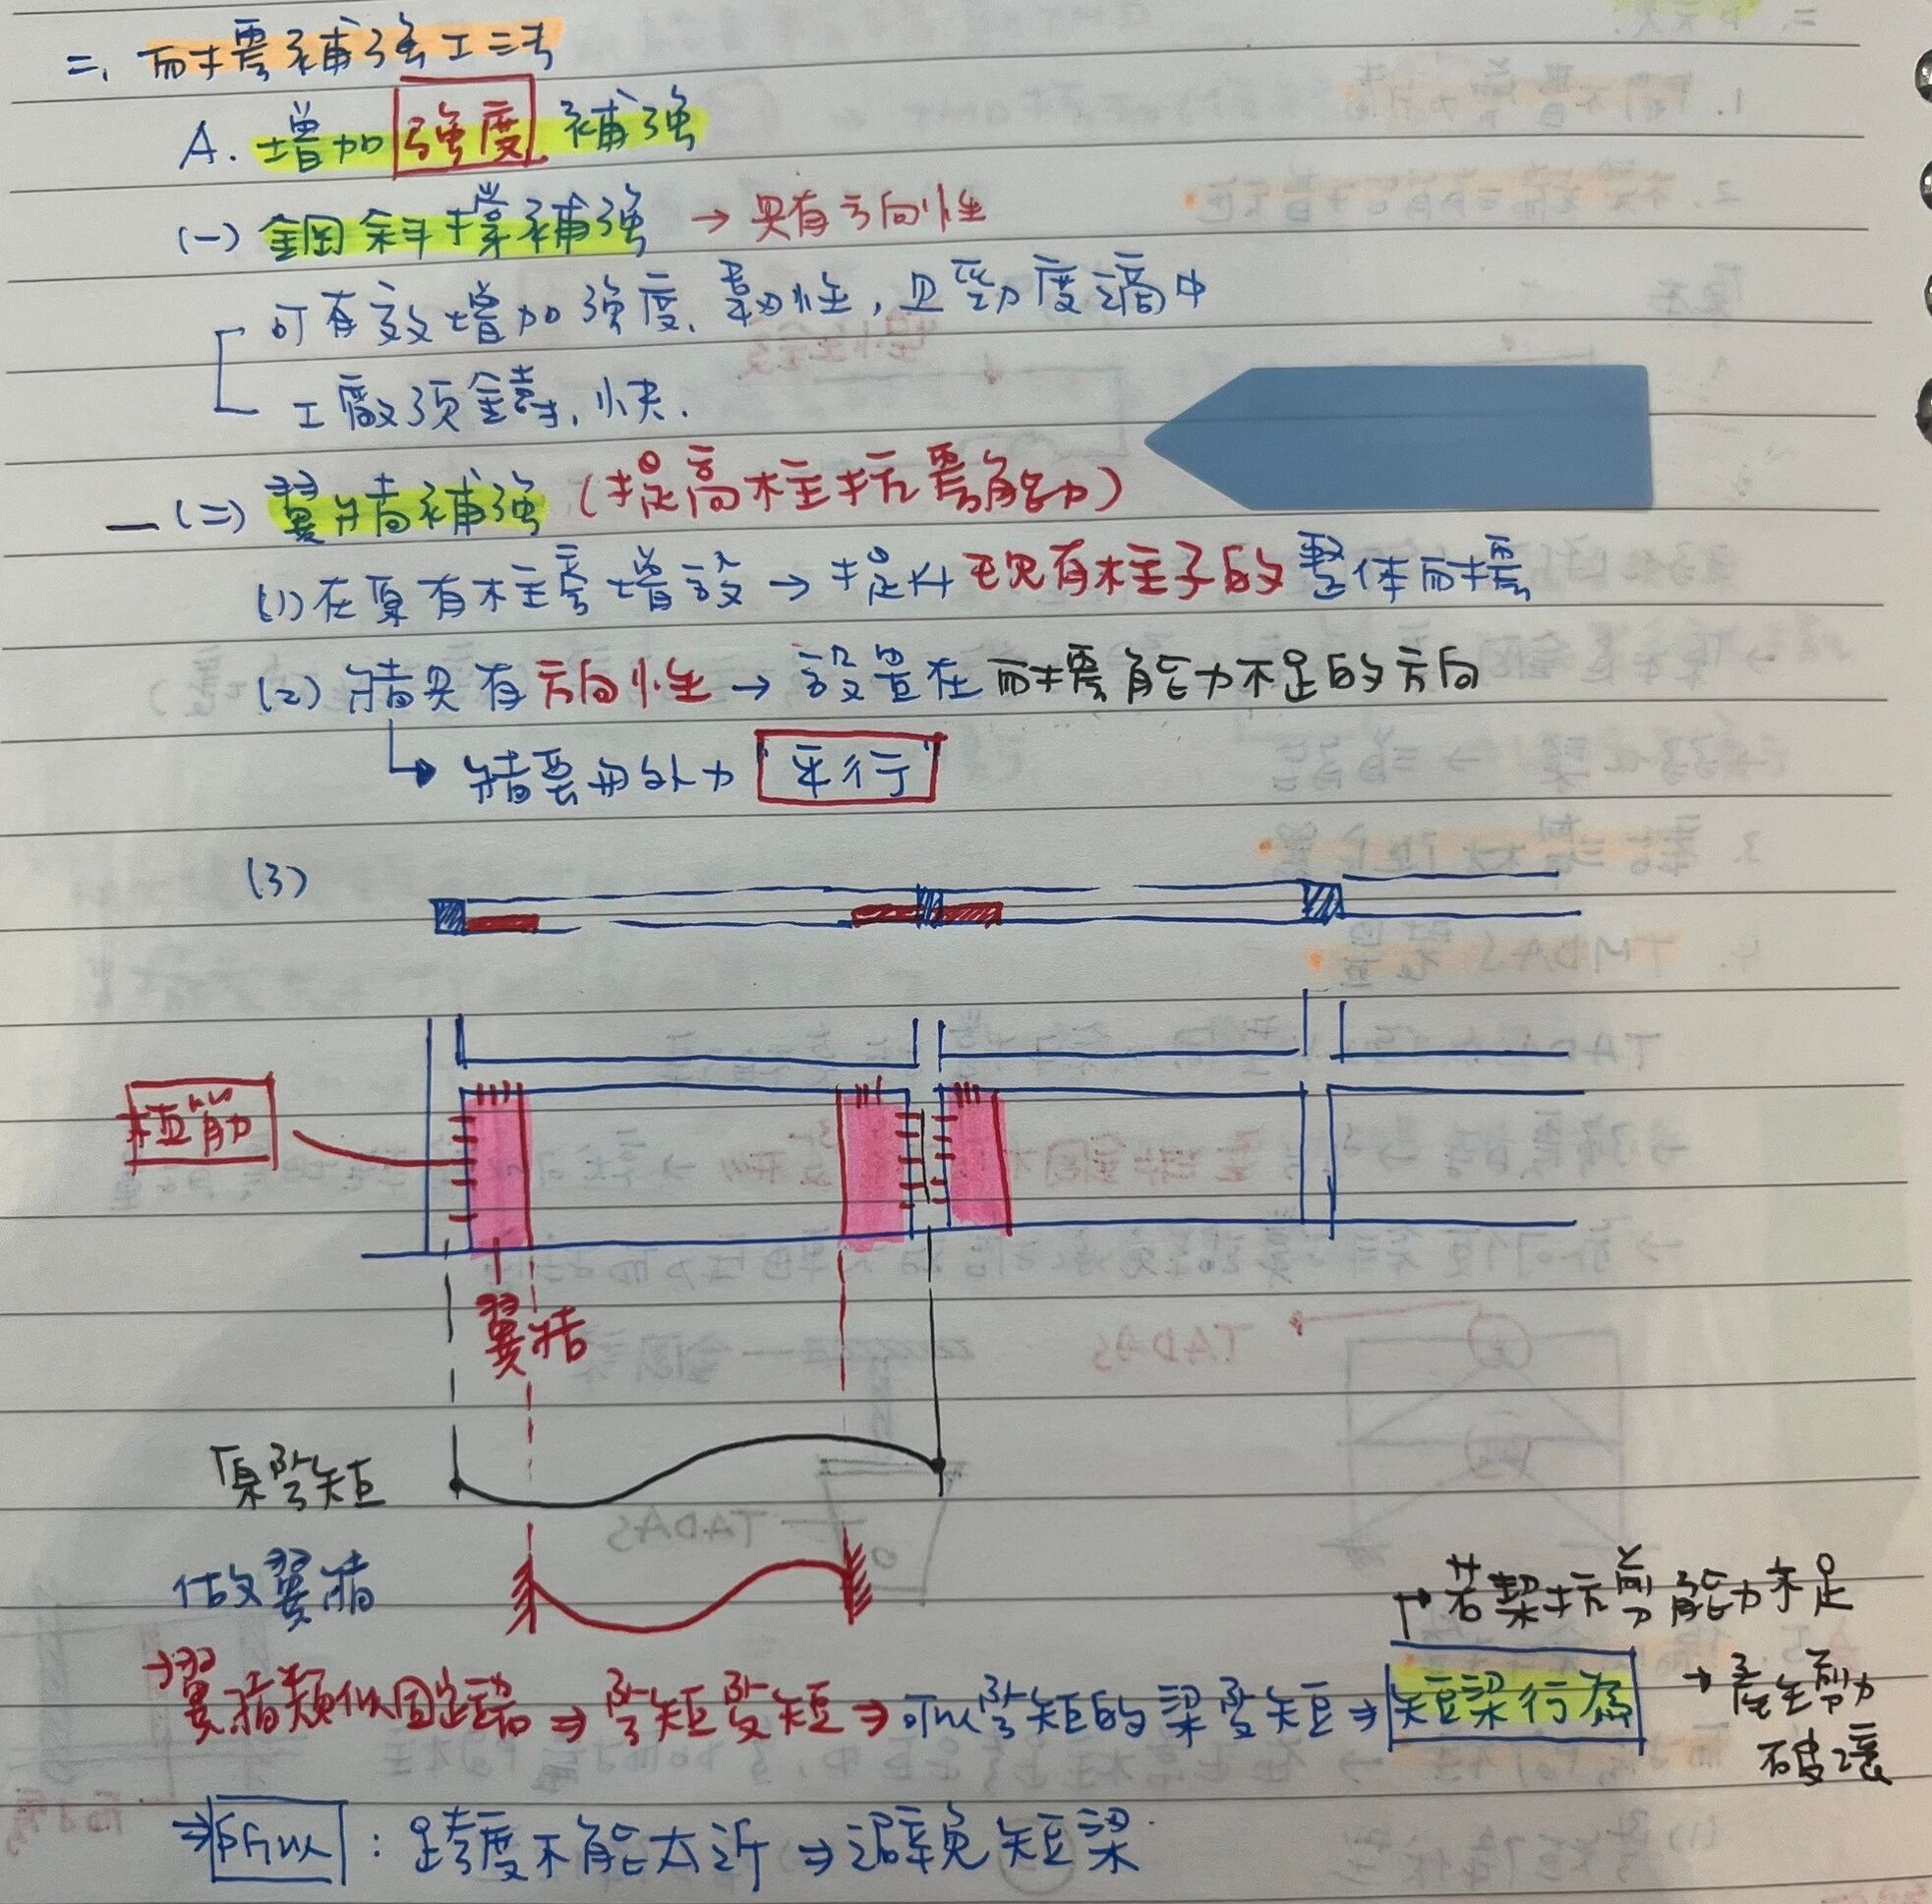 二、耐震補強工法
A. 增加強度補強
(一) 鋼斜撐補強 → 具有方向性
可有效增加強度、韌性，且勁度適中
工廠預鑄，快.
(二) 翼牆補強 (提高柱抗震能力)
(1) 在原有柱旁增設 → 提升現有柱子的整体耐震
(2) 牆具有方向性 → 設置在耐震能力不足的方向
↳ 牆要與外力 平行
(3)
植筋
翼牆
原彎矩
做翼牆
→ 若樑抗剪能力不足
→ 翼牆類似固定端 ⇒ 彎矩變短 ⇒ 可以彎矩的梁變短 ⇒ 短梁行為 → 產生剪力
破壞
⇒ 所以 : 跨度不能太近 ⇒ 避免短梁